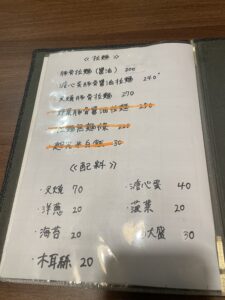 《拉麵》
豚骨拉麵(醬油) 200
溏心蛋豚骨醬油拉麵 240
叉燒豚骨拉麵 270
蔬菜豚骨醬油拉麵 250
220
30
《配料》
·叉燒 70
·溏心蛋 40
·洋蔥 20
·菠菜 20
·海苔 20
大盛 30
·木耳絲 20